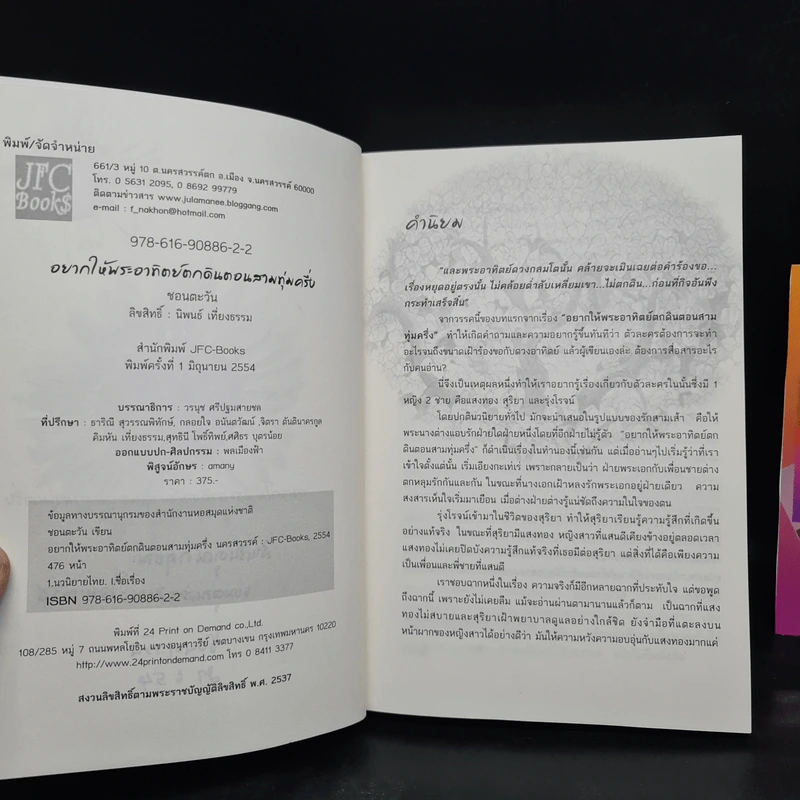 พิมพ์/จัดจำหน่าย
JFC
Book$
661/3 หมู่ 10 ต.นครสวรรค์ตก อ.เมือง จ.นครสวรรค์ 60000
โทร. 0 5631 2095, 0 8692 99779
ติดตามข่าวสาร www.julamanee.bloggang.com
e-mail : f_nakhon@hotmail.com
978-616-90886-2-2
อยากให้พระอาทิตย์ตกดินตอนสามทุ่มครึ่ง
ชอนตะวัน
ลิขสิทธิ์ : นิพนธ์ เที่ยงธรรม
สำนักพิมพ์ JFC-Books
พิมพ์ครั้งที่ 1 มิถุนายน 2554
บรรณาธิการ : วรนุช ศรีปฐมสายชล
ที่ปรึกษา : ธาริณี สุวรรณพิทักษ์, กลอยใจ อนันตวัฒน์ ,จิตรา ตันตินาครกูล
คิมหัน เที่ยงธรรม,สุทธินี โพธิ์ทิพย์,ศศิธร บุตรน้อย
ออกแบบปก-ศิลปกรรม : พลเมืองฟ้า
พิสูจน์อักษร : amany
ราคา : 375.-
ข้อมูลทางบรรณานุกรมของสำนักงานหอสมุดแห่งชาติ
ชอนตะวัน เขียน
อยากให้พระอาทิตย์ตกดินตอนสามทุ่มครึ่ง นครสวรรค์ : JFC-Books, 2554
476 หน้า
1.นวนิยายไทย. I.ชื่อเรื่อง
ISBN 978-616-90886-2-2
พิมพ์ที่ 24 Print on Demand co.,Ltd.
108/285 หมู่ 7 ถนนพหลโยธิน แขวงอนุสาวรีย์ เขตบางเขน กรุงเทพมหานคร 10220
http://www.24printondemand.com โทร 0 8411 3377
สงวนลิขสิทธิ์ตามพระราชบัญญัติลิขสิทธิ์ พ.ศ. 2537
คำนิยม
"และพระอาทิตย์ดวงกลมโตนั้น คล้ายจะเมินเฉยต่อคำร้องขอ...
เรื่องหยุดอยู่ตรงนั้น ไม่คล้อยต่ำลับเหลี่ยมเขา...ไม่ตกดิน...ก่อนที่กิจอันพึง
กระทำเสร็จสิ้น"
จากวรรคนี้ของบทแรกจากเรื่อง "อยากให้พระอาทิตย์ตกดินตอนสาม
ทุ่มครึ่ง" ทำให้เกิดคำถามและความอยากรู้ขึ้นทันทีว่า ตัวละครต้องการจะทำ
อะไรจนถึงขนาดเฝ้าร้องขอกับดวงอาทิตย์ แล้วผู้เขียนเองล่ะ ต้องการสื่อสารอะไร
กับคนอ่าน?
นี่จึงเป็นเหตุผลหนึ่งทำให้เราอยากรู้เรื่องเกี่ยวกับตัวละครในนั้นซึ่งมี 1
หญิง 2 ชาย คือแสงทอง สุริยา และรุ่งโรจน์
โดยปกตินวนิยายทั่วไป มักจะนำเสนอในรูปแบบของรักสามเส้า คือให้
พระนางต่างแอบรักฝ่ายใดฝ่ายหนึ่งโดยที่อีกฝ่ายไม่รู้ตัว "อยากให้พระอาทิตย์ตก
ดินตอนสามทุ่มครึ่ง" ก็ดำเนินเรื่องในทำนองนี้เช่นกัน แต่เมื่ออ่านๆไปเริ่มรู้ว่าที่เรา
เข้าใจตั้งแต่นั้น เริ่มเอียงกะเท่เร่ เพราะกลายเป็นว่า ฝ่ายพระเอกกับเพื่อนชายต่าง
ตกหลุมรักกันและกัน ในขณะที่นางเอกเฝ้าหลงรักพระเอกอยู่ฝ่ายเดียว ความ
สงสารเห็นใจเริ่มมาเยือน เมื่อต่างฝ่ายต่างรู้แน่ชัดถึงความในใจของตน
รุ่งโรจน์เข้ามาในชีวิตของสุริยา ทำให้สุริยาเรียนรู้ความรู้สึกที่เกิดขึ้น
อย่างแท้จริง ในขณะที่สุริยามีแสงทอง หญิงสาวที่แสนดีเคียงข้างอยู่ตลอดเวลา
แสงทองไม่เคยปิดบังความรู้สึกแท้จริงที่เธอมีต่อสุริยา แต่สิ่งที่ได้คือเพียงความ
เป็นเพื่อนและพี่ชายที่แสนดี
เราชอบฉากหนึ่งในเรื่อง ความจริงก็มีอีกหลายฉากที่ประทับใจ แต่ขอพูด
ถึงฉากนี้ เพราะยังไม่เคยลืม แม้จะอ่านผ่านตามานานแล้วก็ตาม เป็นฉากที่แสง
ทองไม่สบายและสุริยาเฝ้าพยาบาลดูแลอย่างใกล้ชิด ยังจำมือที่แตะลงบน
หน้าผากของหญิงสาวได้อย่างดีว่า มันให้ความหวังความอบอุ่นกับแสงทองมากแค่